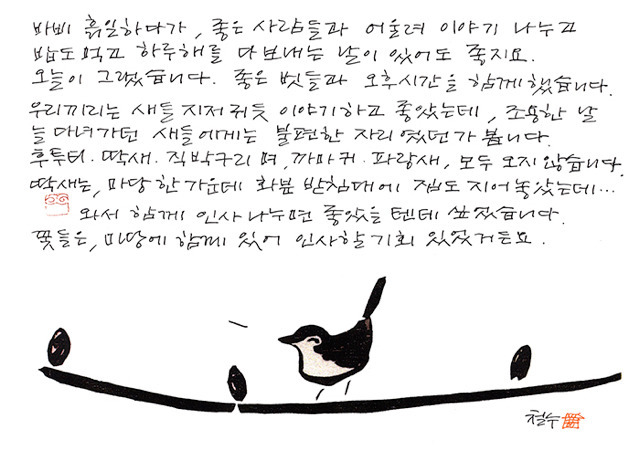 바삐 흙일하다가, 좋은 사람들과 어울려 이야기 나누고
밥도 먹고 하루해를 다 보내는 날이 있어도 좋지요.
오늘이 그랬습니다. 좋은 벗들과 오후시간을 함께 했습니다.
우리끼리는 새들 지저귀듯 이야기하고 좋았는데, 조용한 날
늘 다녀가던 새들에게는 불편한 자리였던가 봅니다.
후투티·딱새·직박구리며, 까마귀·파랑새, 모두 오지 않습니다.
딱새는, 마당 한가운데 화분 받침대에 집도 지어 놓았는데···
와서 함께 인사 나누면 좋았을 텐데 싶었습니다.
꽃들은, 마당에 함께 있어 인사할 기회 있었거든요.
철수